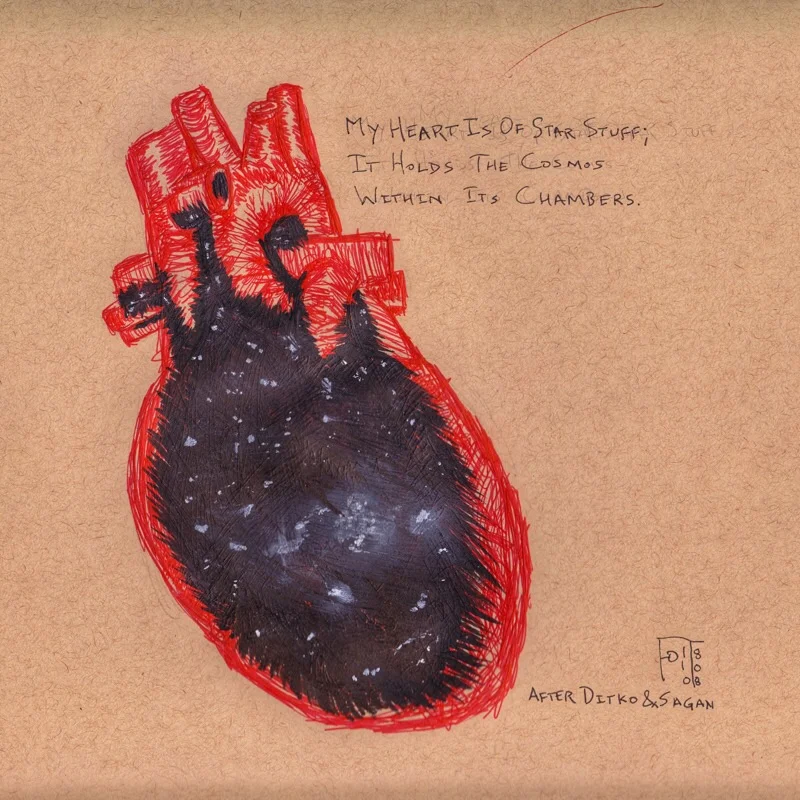 My Heart Is Of Star Stuff;
It Holds The Cosmos
Within Its Chambers.
After Ditko & Sagan